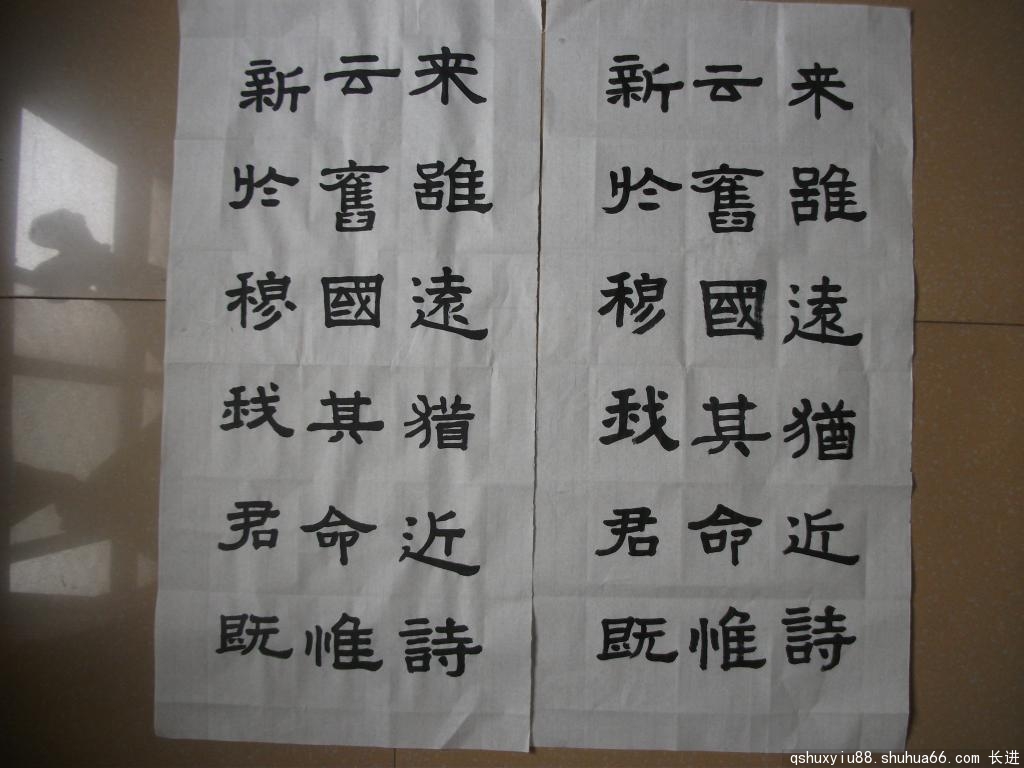 来雖遠猶近詩
云舊國其命惟
新於穆我君既
来雖遠猶近詩
云舊國其命惟
新於穆我君既
qshuxyiu88.shuhua66.com 长进